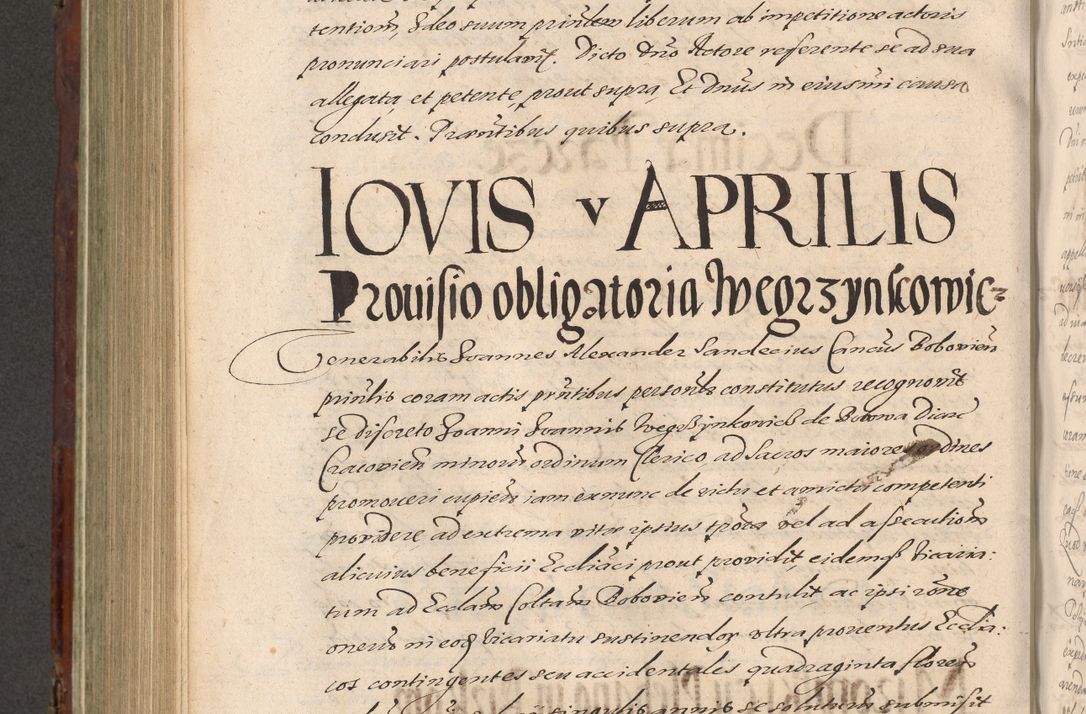 tention, Ideo suum prinlem liberum ab impetitione actoris
pronunciari postulavit. Dicto Dno Actore referente se ad sua
allegata et petente, prout supra, Et Dnus in eiusmi causa
conclusit. Prntibus quibus supra.
IOVIS v APRILIS
Provisio obligatoria Wegrzynkowic
Venerabilis Joannes Alexander Sandecius Cancus Bobovien
prinlis coram actis prntibus personls constitutus recognovit
se discreto Joanni Joannis Wegrzynkovich de Bobowa Dioec
Cracovien minorum ordinum Clerico, ad Sacros maiores ordines
promoveri cupien iam exnunc de victu et amictu competenti
providere, ad extrema vitae ipsius tpora vel ad assecutionem
alicuius beneficii Eccliaci prout providit, eidemq Vicaria:
tum ad Ecclam Coltam Bobovien contulit, ac ipsi rone
oneris in eoq Vicariatu sustinendor ultra proventus Ecclia:
cos contingentes seu accidentales quadraginta floren
singulis annis se soluturum submisit